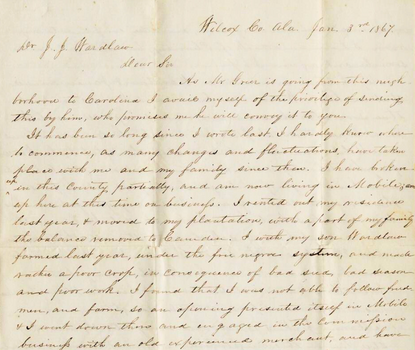 Wilcox Co. Ala Jan. 3rd 1867
Dr J. J. Wardlaw
Dear Sir
As Mr Grier is going from this neigh
borhood to Carolina I avail myself of the privilege of sending
this by him, who promises me he will convey it to you.
It has been so long since I wrote last I hardly know where
to commence, as many changes and fluctuations, have taken
place with me and my family since then. I have broken
up
in this County, partially, and am now living in Mobile, am
up here at this time on business. I rented out my residence
last year, & moved to my plantation, with a part of my family
the balance removed to Camden. I with my son Wardlaw
farmed last year, under the free negroe system, and made
rather a poor crop, in consequence of bad seed, bad season
and poor work. I found that I was not able to follow freed
men, and farm, so an opening presented itself in Mobile
& I went down there and engaged in the Commission
business with an old experienced merchant, and have